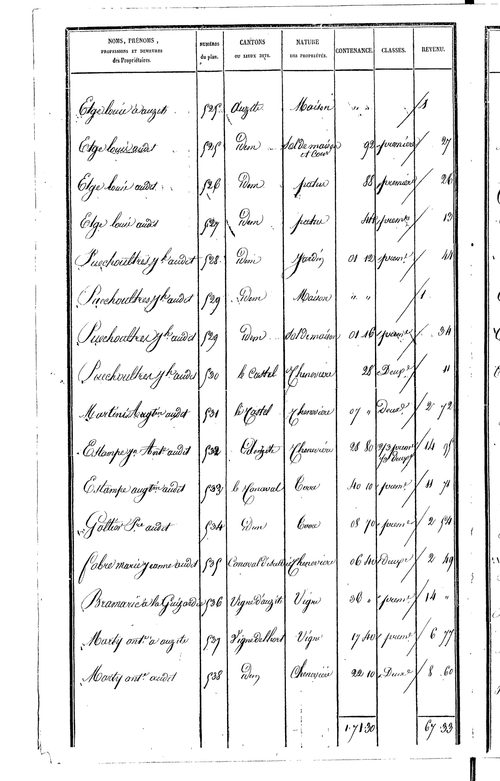 NOMS, PRÉNOMS, PROFESSIONS ET DEMEURES des Propriétaires. NUMÉROS du plan. CANTONS OU LIEUX DITS. NATURE DES PROPRIÉTÉS. CONTENANCE. CLASSES. REVENU.
Etge louis à auzits 525 auzits Maison " " / 1
Etge louis audit 525 Idem Sol de maison et Cour 92 première / 27
Etge louis audit 526 Idem patus 88 première / 26
Etge louis audit 527 Idem patus 44 premre / 13
Puechoultres jh audit 528 Idem Jardin 01 12 premre / 44
Puechoultres jh audit 529 Idem Maison " " / 1
Puechoultres jh audit 529 Idem Sol de maison 01 16 premre / 34
Puechoultres jh audit 530 le Castel Chenevière 28 Deuxe / 11
Martinie audit 531 le Castel Chenevière 07 " Deuxe / 2 72
Estampe audit 532 Chenevière 28 80 / 14 95
Estampe audit 533 le Canaval 40 10 premre / 11 71
Galtier audit 534 Idem 08 70 premre / 2 54
fabre marie jeanne audit 535 Chenevière 06 40 Deuxe / 2 49
Bramarie à la Guizardie 536 Vigne d'auzits Vigne 36 " premre / 14 "
Marty antne à auzits 537 Vigne delhort Vigne 17 40 premre / 6 77
Marty antne audit 538 Idem Chenevière 22 10 Deuxe / 8 60
1.71.30 67.33